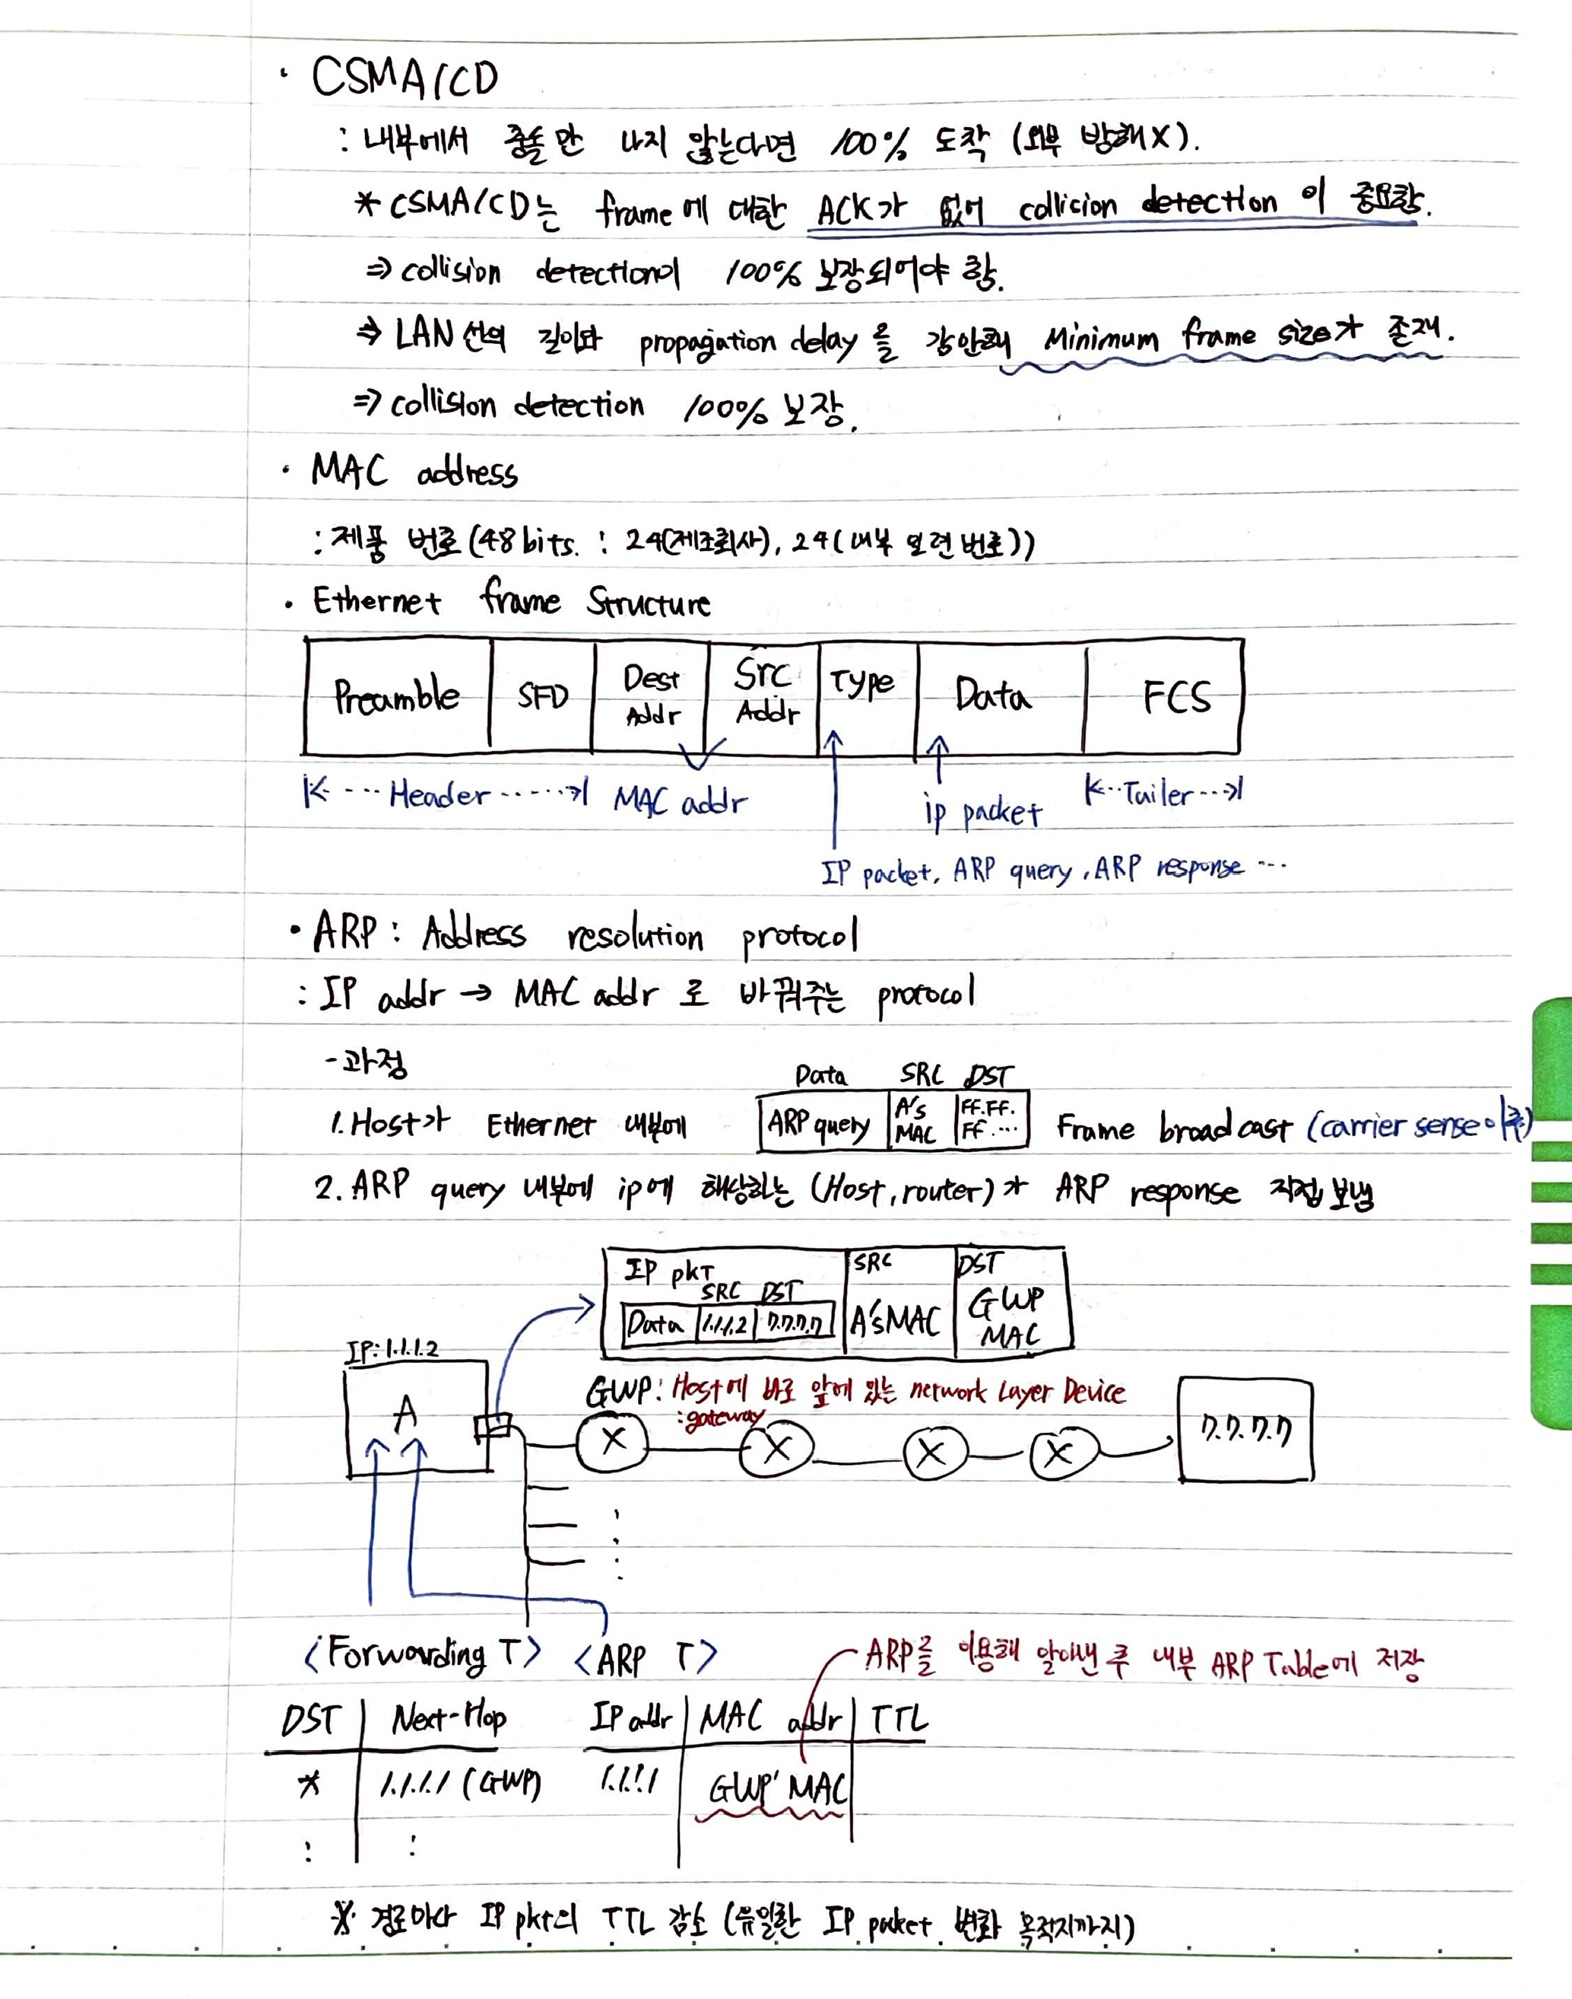 · CSMA/CD
: 내부에서 충돌만 나지 않는다면 100% 도착 (외부 방해X).
* CSMA/CD는 frame에 대한 ACK가 없어 collicion detection이 중요함.
⇒ collision detection이 100% 보장되어야 함.
⇒ LAN 선의 길이와 propagation delay을 감안해 Minimum frame size가 존재.
⇒ collision detection 100% 보장.
· MAC address
: 제품 번호(48bits. : 24(제조회사), 24(내부 일련번호))
· Ethernet frame Structure
Preamble SFD Dest Addr Src Addr Type Data FCS
K- ··· Header ·····->| MAC addr ip packet K-··Tailer···>|
IP packet, ARP query, ARP response ···
· ARP : Address resolution protocol
: IP addr → MAC addr 로 바꿔주는 protocol
- 과정
Data SRC DST
1. Host가 Ethernet 내부에 ARP query A's MAC FF.FF. FF.··· Frame broadcast (carrier sense이후)
2. ARP query 내부에 ip에 해상하는 (Host, router)가 ARP response 직접 보냄
IP pkt SRC DST
SRC DST
Data 1.1.1.2 7.7.7.7 A's MAC GWP MAC
IP: 1.1.1.2
A
GWP : Host에 바로 앞에 있는 network Layer Device
: gateway
X X X X 7.7.7.7
<Forwarding T> <ARP T> ARP를 이용해 알아낸 후 내부 ARP Table에 저장
DST Next-Hop IP addr MAC addr TTL
* 1.1.1.1 (GWP) 1.1.1.1 GWP' MAC
: :
※ 경로마다 IP pkt의 TTL 감소 (유일한 IP packet 변화 목적지까지)